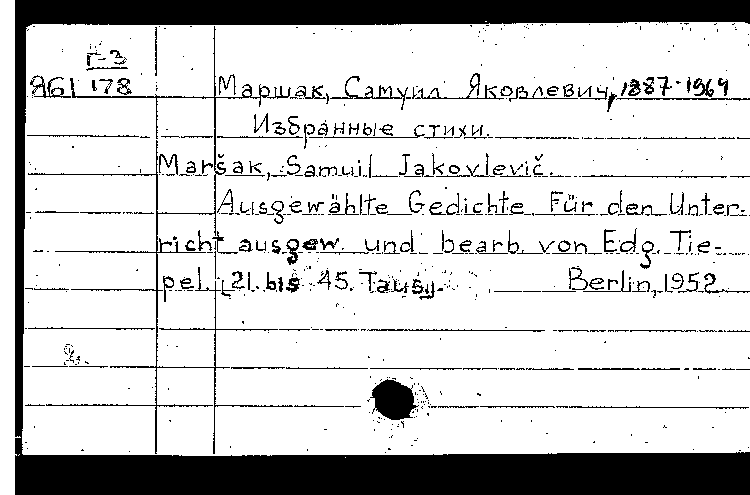 Г-3
861 178
Маршак, Самуил Яковлевич, 1887-1964
Избранные стихи.
Maršak, Samuil Jakovlevič.
Ausgewählte Gedichte. Für den Unter-
richt ausgew. und bearb. von Edg. Tie-
pel. [21. bis 45. Taus.]. Berlin, 1952.